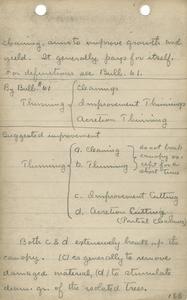 cleaning, aims to improve growth and
yield. It generally pays for itself.
For definitions see Bull. 61.
By Bull. #61
Thinning
Cleanings
Improvement Thinnings
Accretion Thinning
Suggested improvement
Thinnings
a. Cleaning
b. Thinning
do not break
canopy ex-
cept for a
short time
c. Improvement Cutting
d. Accretion Cutting
(Partial Clearing)
Both c & d extensively break up the
canopy. (c) is generally to remove
damaged material, (d) to stimulate
diam. gr. of the isolated trees.